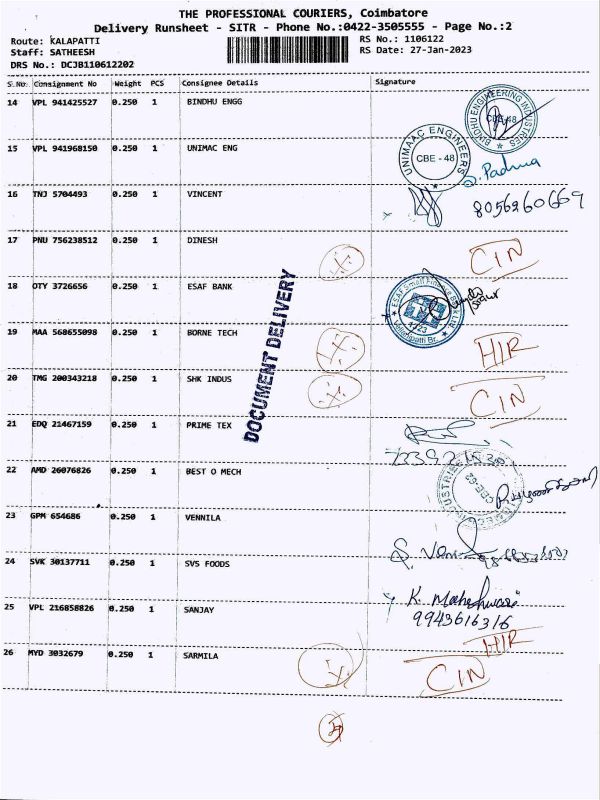 THE PROFESSIONAL COURIERS, Coimbatore
Delivery Runsheet - SITR - Phone No.:0422-3505555 - Page No.:2
Route: KALAPATTI RS No.: 1106122
Staff: SATHEESH RS Date: 27-Jan-2023
DRS No.: DCJB110612202
S.No. Consignment No Weight PCS Consignee Details Signature
14 VPL 941425527 0.250 1 BINDHU ENGG
BINDHU ENGINEERING INDUSTRIES CBE-48
15 VPL 941968150 0.250 1 UNIMAC ENG
UNIMAAC ENGINEERS CBE - 48
S. Padma
16 TNJ 5704493 0.250 1 VINCENT
8056260669
17 PNU 756238512 0.250 1 DINESH CIN
18 OTY 3726656 0.250 1 ESAF BANK
ESAF Small Finance Bank Kalapatti Br.
DOCUMENT DELIVERY
19 MAA 568655098 0.250 1 BORNE TECH HIR
20 TMG 200343218 0.250 1 SHK INDUS CIN
21 EDQ 21467159 0.250 1 PRIME TEX
22 AMD 26076826 0.250 1 BEST O MECH
CBE-62
23 GPM 654686 0.250 1 VENNILA
24 SVK 30137711 0.250 1 SVS FOODS
25 VPL 216858826 0.250 1 SANJAY K. Maheshwari
9943616316
HIR
26 MYD 3032679 0.250 1 SARMILA CIN